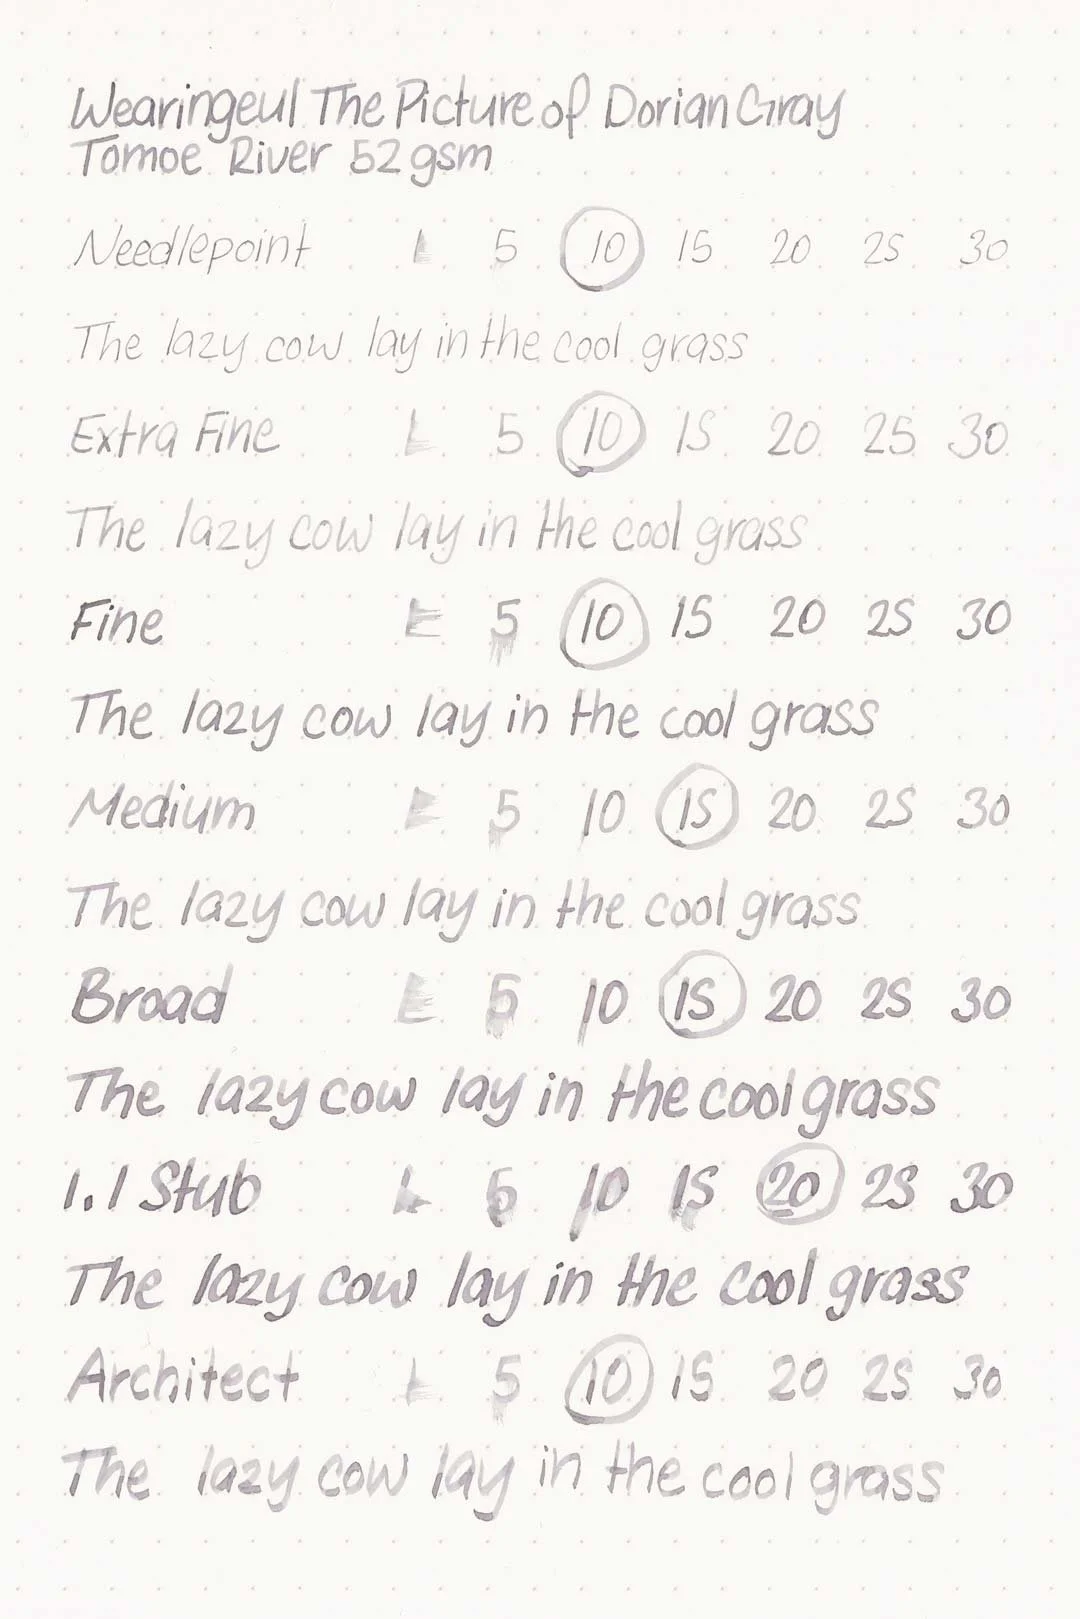 Wearingeul The Picture of Dorian Gray
Tomoe River 52gsm
Needlepoint 1 5 10 15 20 25 30
The lazy cow lay in the cool grass
Extra Fine 1 5 10 15 20 25 30
The lazy cow lay in the cool grass
Fine 1 5 10 15 20 25 30
The lazy cow lay in the cool grass
Medium 1 5 10 15 20 25 30
The lazy cow lay in the cool grass
Broad 1 5 10 15 20 25 30
The lazy cow lay in the cool grass
1.1 Stub 1 5 10 15 20 25 30
The lazy cow lay in the cool grass
Architect 1 5 10 15 20 25 30
The lazy cow lay in the cool grass